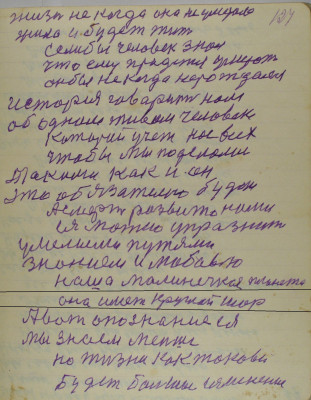 жизнь некогда она не умерала
жила и будет жит
если бы человек знал
что ему придется умерет
он бы некогда нерождался
История говарит нам
об одном таком человек
Каторый учет нас всех
чтобы мы поделали
Такими как и он
Это обязателно будет
А смерт развито нами
ея можно упразнит
умелыми путями
знанием и любовю
наша малинечкая планета
она имеет Круглой шар
А вот опознание ея
мы знаем менше
но жизни как таковой
Будет болше изменени